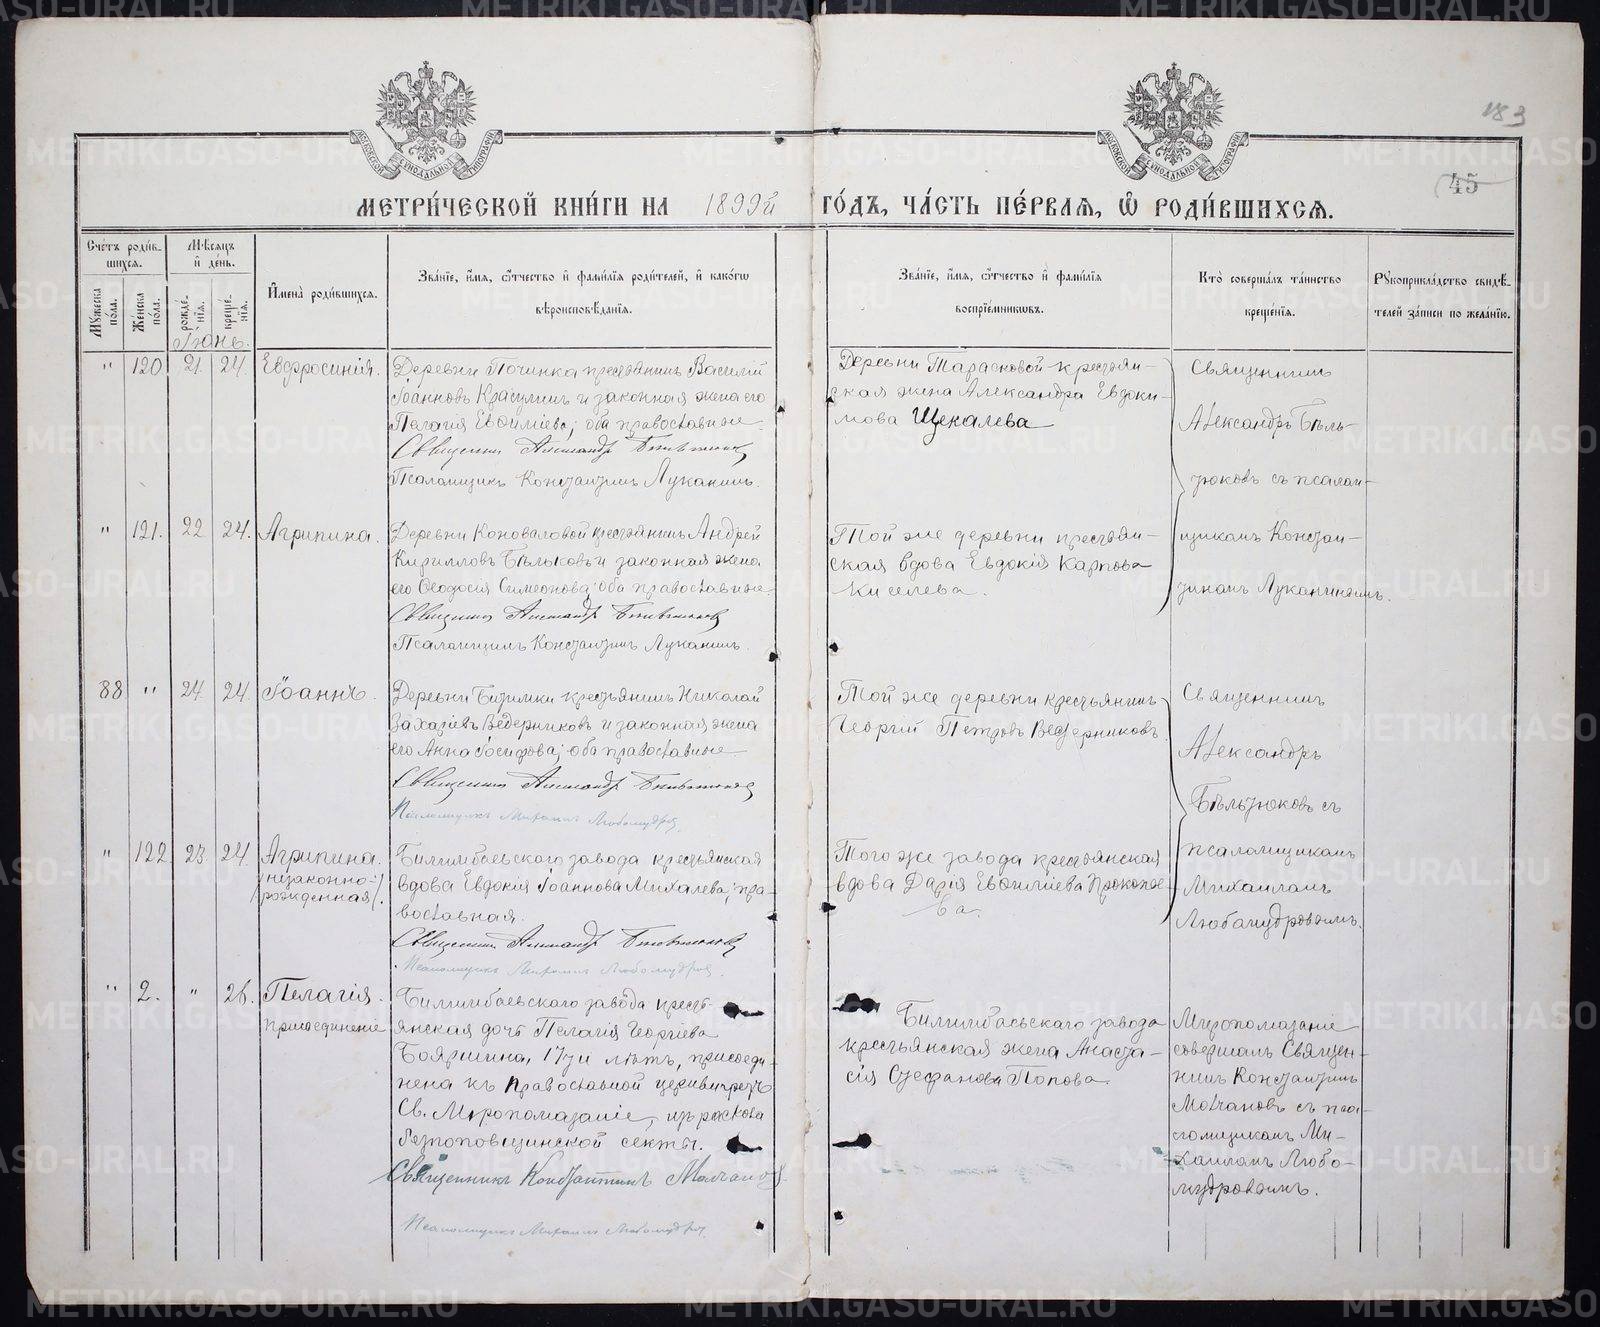 183
45
МЕТРИ́ЧЕСКОЙ КНИ́ГИ НА 1899й ГО́ДЪ, ЧА́СТЬ ПЕ́РВАѦ, Ѽ РОДИ́ВШИХСѦ.
Сче́тъ роди́в-
шихсѧ.
Мꙋжеска по́ла.
Же́нска по́ла.
Мѣ́сѧцъ
и҆ де́нь.
рожде́-
нїѧ.
креще́-
нїѧ.
И҆мена̀ роди́вшихсѧ.
Зва́нїе, и҆́мѧ, ѻ҆́тчество и҆ фами́лїѧ роди́телей, и҆ како́гѡ
вѣроисповѣ́данїѧ.
Зва́нїе, и҆́мѧ, ѻ҆́тчество и҆ фами́лїѧ
воспрїе́мникѡвъ.
Кто̀ соверша́лъ та́инство
креще́нїѧ.
Рꙋкоприкла́дство свидѣ́-
телей за́писи по жела́нїю.
Іюнь.
" 120 21. 24. Евфросинія.
Деревни Починка крестьянинъ Василій
Іоанновъ Красулинъ и законная жена его
Пелагія Евфиміева; оба православные
Священникъ Александръ Бѣльтюковъ
Псаломщикъ Константинъ Луканинъ.
Деревни Тарасковой крестьян-
ская жена Александра Евдоки-
мова Щекалева
Священникъ
Александръ Бѣль-
тюковъ съ псалом-
щикомъ Констан-
тиномъ Луканинымъ.
" 121. 22 24. Агрипина.
Деревни Коноваловой крестьянинъ Андрей
Кирилловъ Бѣльковъ и законная жена
его Ѳеодосія Симеонова; оба православные
Священникъ Александръ Бѣльтюковъ
Псаломщикъ Константинъ Луканинъ.
Той же деревни крестьян-
ская вдова Евдокія Карпова
Киселева.
88 " 24. 24. Іоаннъ.
Деревни Битимки крестьянинъ Николай
Захаріевъ Ведерниковъ и законная жена
его Анна Іосифова; оба православные
Священникъ Александръ Бѣльтюковъ
Псаломщикъ Михаилъ Любомудровъ.
Той же деревни крестьянинъ
Георгій Петровъ Ведерниковъ.
Священникъ
Александръ
Бѣльтюковъ съ
псаломщикомъ
Михаиломъ
Любомудровымъ.
" 122 23. 24. Агрипина.
/незаконно-
рожденная/.
Билимбаевскаго завода крестьянская
вдова Евдокія Іоаннова Михалева; пра-
вославная.
Священникъ Александръ Бѣльтюковъ
Псаломщикъ Михаилъ Любомудровъ.
Того же завода крестьянская
вдова Дарія Евфиміева Прокопье-
ва.
" 2. " 26. Пелагія.
Присоединеніе
Билимбаевскаго завода кресть-
янская дочь Пелагія Георгіева
Бояршина, 17ти лѣтъ, присоеди-
нена къ Православной церкви чрезъ
Св. Мѵропомазаніе, изъ раскола
безпоповщинской секты.
Священникъ Константинъ Молчановъ.
Псаломщикъ Михаилъ Любомудровъ.
Билимбаевскаго завода
крестьянская жена Анаста-
сія Стефанова Попова
Мѵропомазаніе
совершалъ Священ-
никъ Константинъ
Молчановъ съ пса-
ломщикомъ Ми-
хаиломъ Любо-
мудровымъ.
METRIKI.GASO-URAL.RU